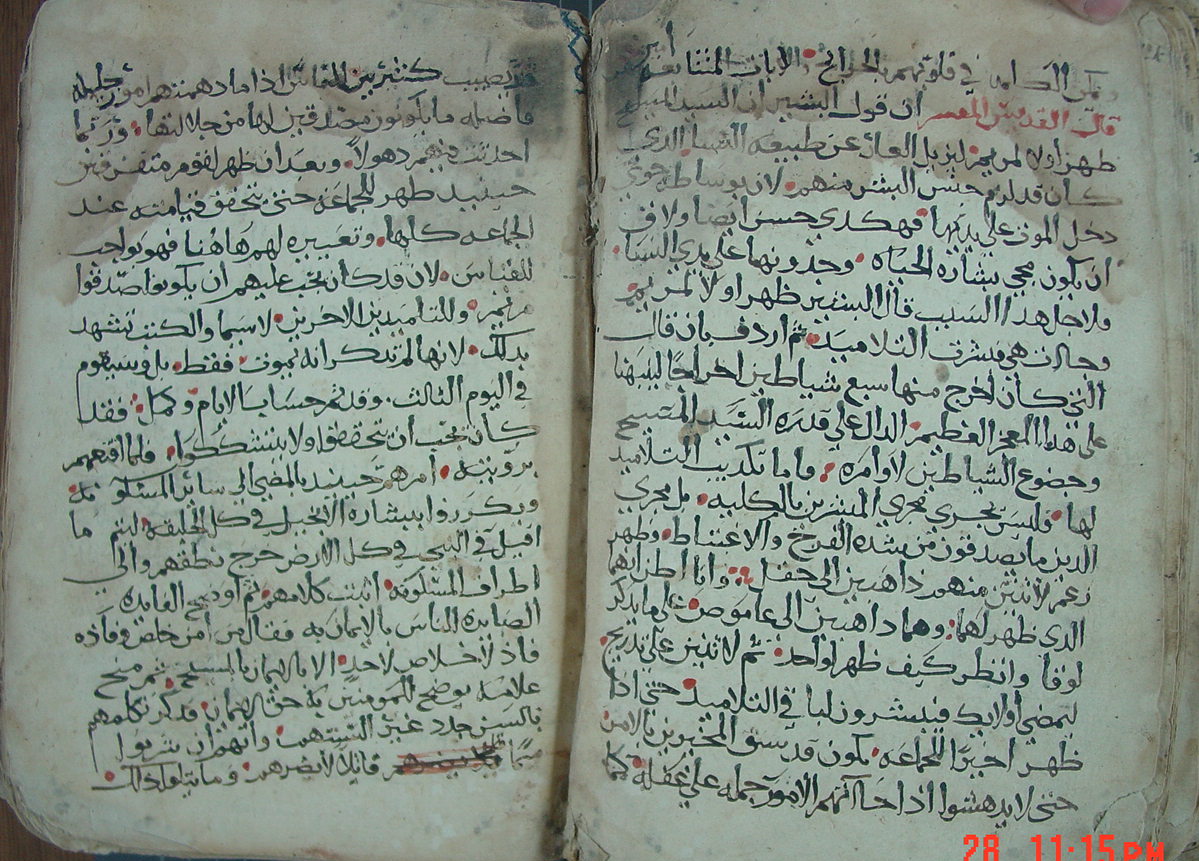 في قلوبهم الجرائح الايات المتتابعه
قال القديس المفسر ان قول البشير ان السيد المسيح
ظهر اولا لمريم ليزيل العار عن طبيعه النسا الذي
كان قد لزم جنس البشر منهم لان بوساطه حوي
دخل الموت علي يديها فهكدي حسن ايضا ولاق
ان يكون مجي بشاره الحياه وجدونها علي يدي النسا
ولاجل هدا السبب قال البشير ظهر اولا لمريم
وحارت هي مبشرت التلاميد ثم اردف بان قال
التي كان اخرج منها سبع شياطين اخراجا لينبهنا
علي هدا المعجز العظيم الدال علي قدره السيد المسيح
وخضوع الشياطين لاوامره فاما تكديب التلاميد
لها فليس يجري مجري المنكرين بالكليه بل مجري
الدين ما يصدقون من شده الفرح والاغتباط وظهر
زعم لاتنين منهم داهبين الي حقل وانا اظن انهما
الدي ظهر لهما وهما داهبين الي عاموص علي ما يدكر
لوقا وانظر كيف ظهر اولا واحد ثم لاتنين علي تدريج
ليمضي اولايك فيبشرون لباقي التلاميد حتي ادا
ظهر اخيرا للجماعه يكون قد سبق المخبرين بالامر
حتي لا يدهشوا ادا جاتهم الامور جمله علي غفله كما
قد يصيب كثيرين من الناس ادا ما دهمتهم امور جليله
فاضله ما يكونون مصدقين لها من جلالتها وربما
احدثت فيهم دهولا وبعد ان ظهر لقوم متفرقين
حينيد ظهر للجماعه حتي تتحقق قيامته عند
الجماعه كلها وتعييره لهم هاهنا فهو بواجب
للقياس لان قد كان يجب عليهم ان يكونوا صدقوا
مريم والتلميدين الاخرين لاسيما والكتب تشهد
بدلك لانها لم تدكر انه يموت فقط بل وسيقوم
في اليوم الثالث وقد تم حساب الايام وكمل فقد
كان يجب ان يتحققوا ولا يتشككوا فلما اقنعهم
برويته امرهم حينيد بالمضي الي ساير المسكونه
ويكرزوا ببشاره الانجيل في كل الخليقه ليتم ما
اقيل في النبي في كل الارض خرج نطقهم والي
اطراف المسكونه اتبتت كلامهم ثم اوضح الفايده
الصايره للناس بالايمان به فقال من امن خلص وفاده
فاد لا خلاص لاحد الا بالايمان بالمسيح ثم منح
علامه يوضح للمومنين به حق الايمان فدكر تكلمهم
بالسن جدد غير السنتهم وانهم ان شربوا
سما قاتلا لا يضرهم وما يتلو دلك